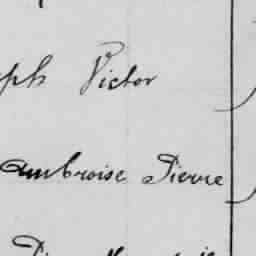 ph Victor
Ambroise Pierre